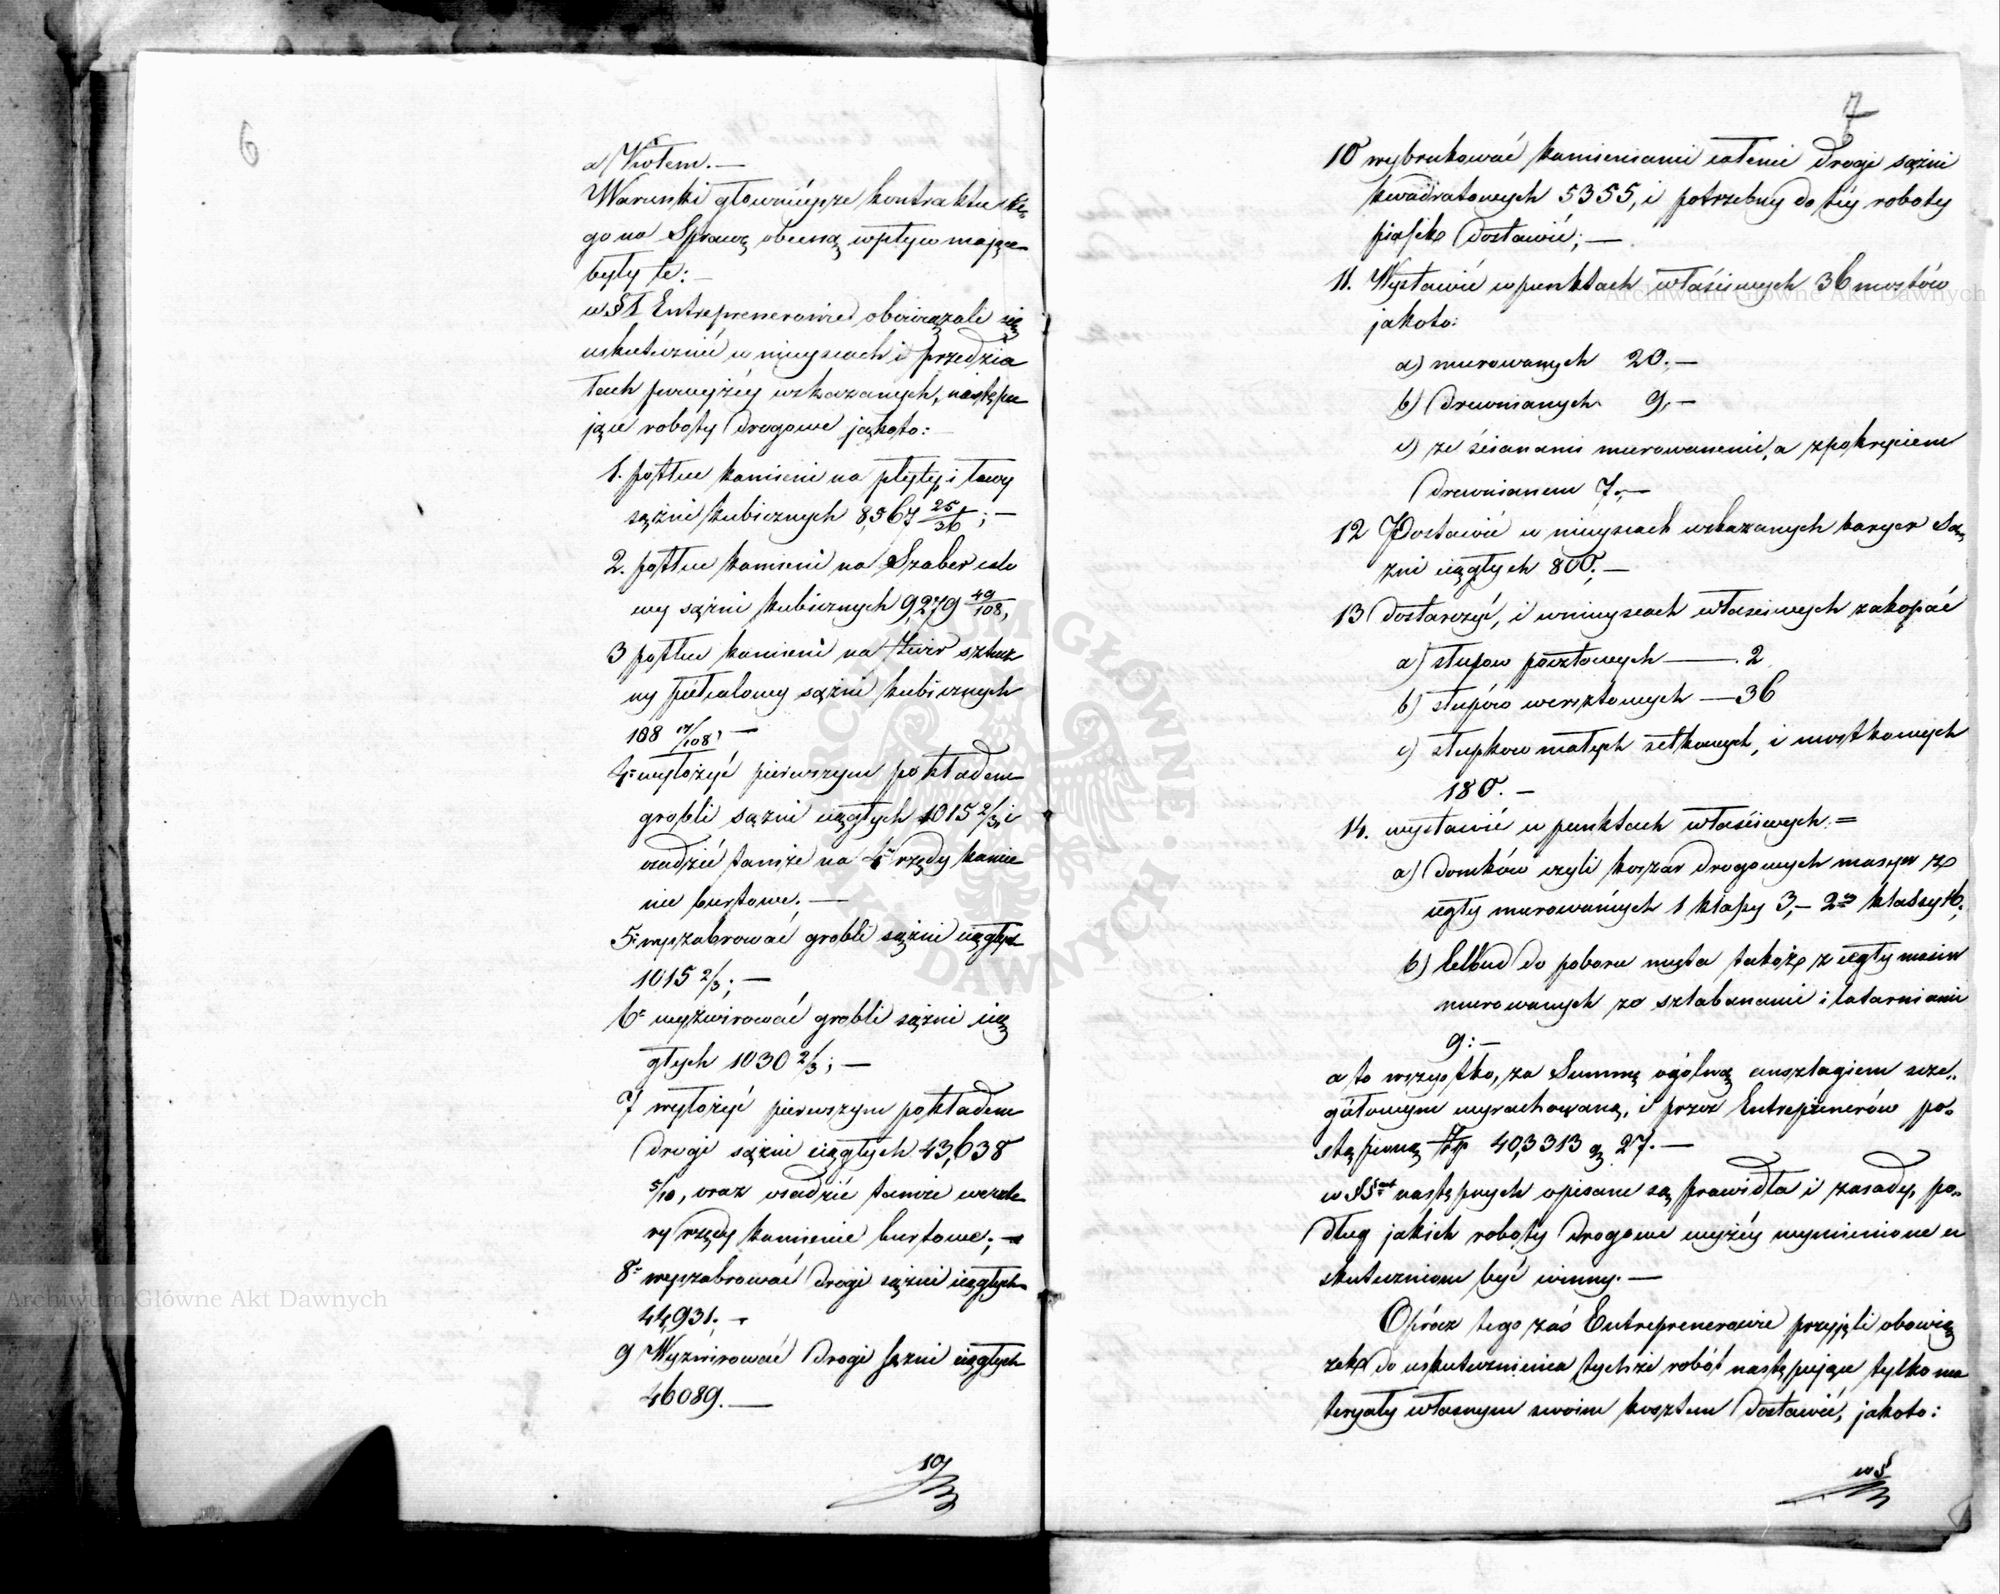 6
a) Wołem. —
Warunki głowniéysze kontraktu te-
go na Sprawę obecną wpływ mające
były te: —
w § 1 Entreprenerowie obowiązali się
uskutecznić w mieyscach i przedzia
łach powyżéy wskazanych, następu
jące roboty drogowe jakoto: —
1. potłuc kamieni na płyty i ławy
sążni kubicznych 8,567 25/36; —
2. potłuc kamieni na Szaber calo
wy sążni kubicznych 9,279 49/108,
3 potłuc kamieni na żwir sztucz
ny pułcalowy sążni kubicznych
108 17/108, —
4. wyłożyć pierwszym pokładem
grobli sążni ciągłych 1015 2/3, i
osadzić tamże na 4 rzędy kamie
nie burtowe; —
5. wyszabrować grobli sążni ciągłych
1015 2/3; —
6. wyżwirować grobli sążni cią
głych 1030 2/3; —
7 wyłożyć pierwszym pokładem
drogi sążni ciągłych 43,638
5/10, oraz osadzić tamże w czte
ry rzędy kamienie burtowe; —
8. wyszabrować drogi sążni ciągłych
44,931. —
9 Wyżwirować drogi sążni ciągłych
46089. —
10
7
10 wybrukować kamieniami całemi drogi sążni
kwadratowych 5355, i potrzebny do téy roboty
piasek dostawić; —
11. Wystawić w punktach właściwych 36 mostów
jakoto:
a) murowanych 20. —
b) drewnianych 9, —
c) ze ścianami murowanemi, a z pokryciem
drewnianem 7; —
12 Postawić w mieyscach wskazanych baryer Są,
żni ciągłych 800; —
13 dostarczyć, i w mieyscach właściwych zakopać
a) słupow pocztowych — 2
b) słupów wersztowych — 36
c) słupkow małych setkowych, i mostkowych
180. —
14. wystawić w punktach właściwych: =
a) domków czyli koszar drogowych massyw z
cegły murowanych 1 klassy 3, — 2 klassy 16;
b) Celbud do poboru myta także z cegły massiw
murowanych ze sztabanami i latarniami
9: —
a to wszystko, za Summę ogólną ansztagiem szcze,,
gółowym wyrachowaną, i przez Entreprenerów po-
stąpioną Złp 403313 gr 27. —
w §§ następnych opisane są prawidła i zasady, po-
dług jakich roboty drogowe wyżéy wymienione u
skutecznione być winny. —
Oprócz tego zaś Entreprenerowie przyjęli obowią
zek do uskutecznienia tychże robót następujące tylko ma
teryały własnym swoim kosztem dostawić, jakoto:
w §
Archiwum Główne Akt Dawnych
Archiwum Główne Akt Dawnych
ARCHIWUM GŁÓWNE · AKT DAWNYCH ·